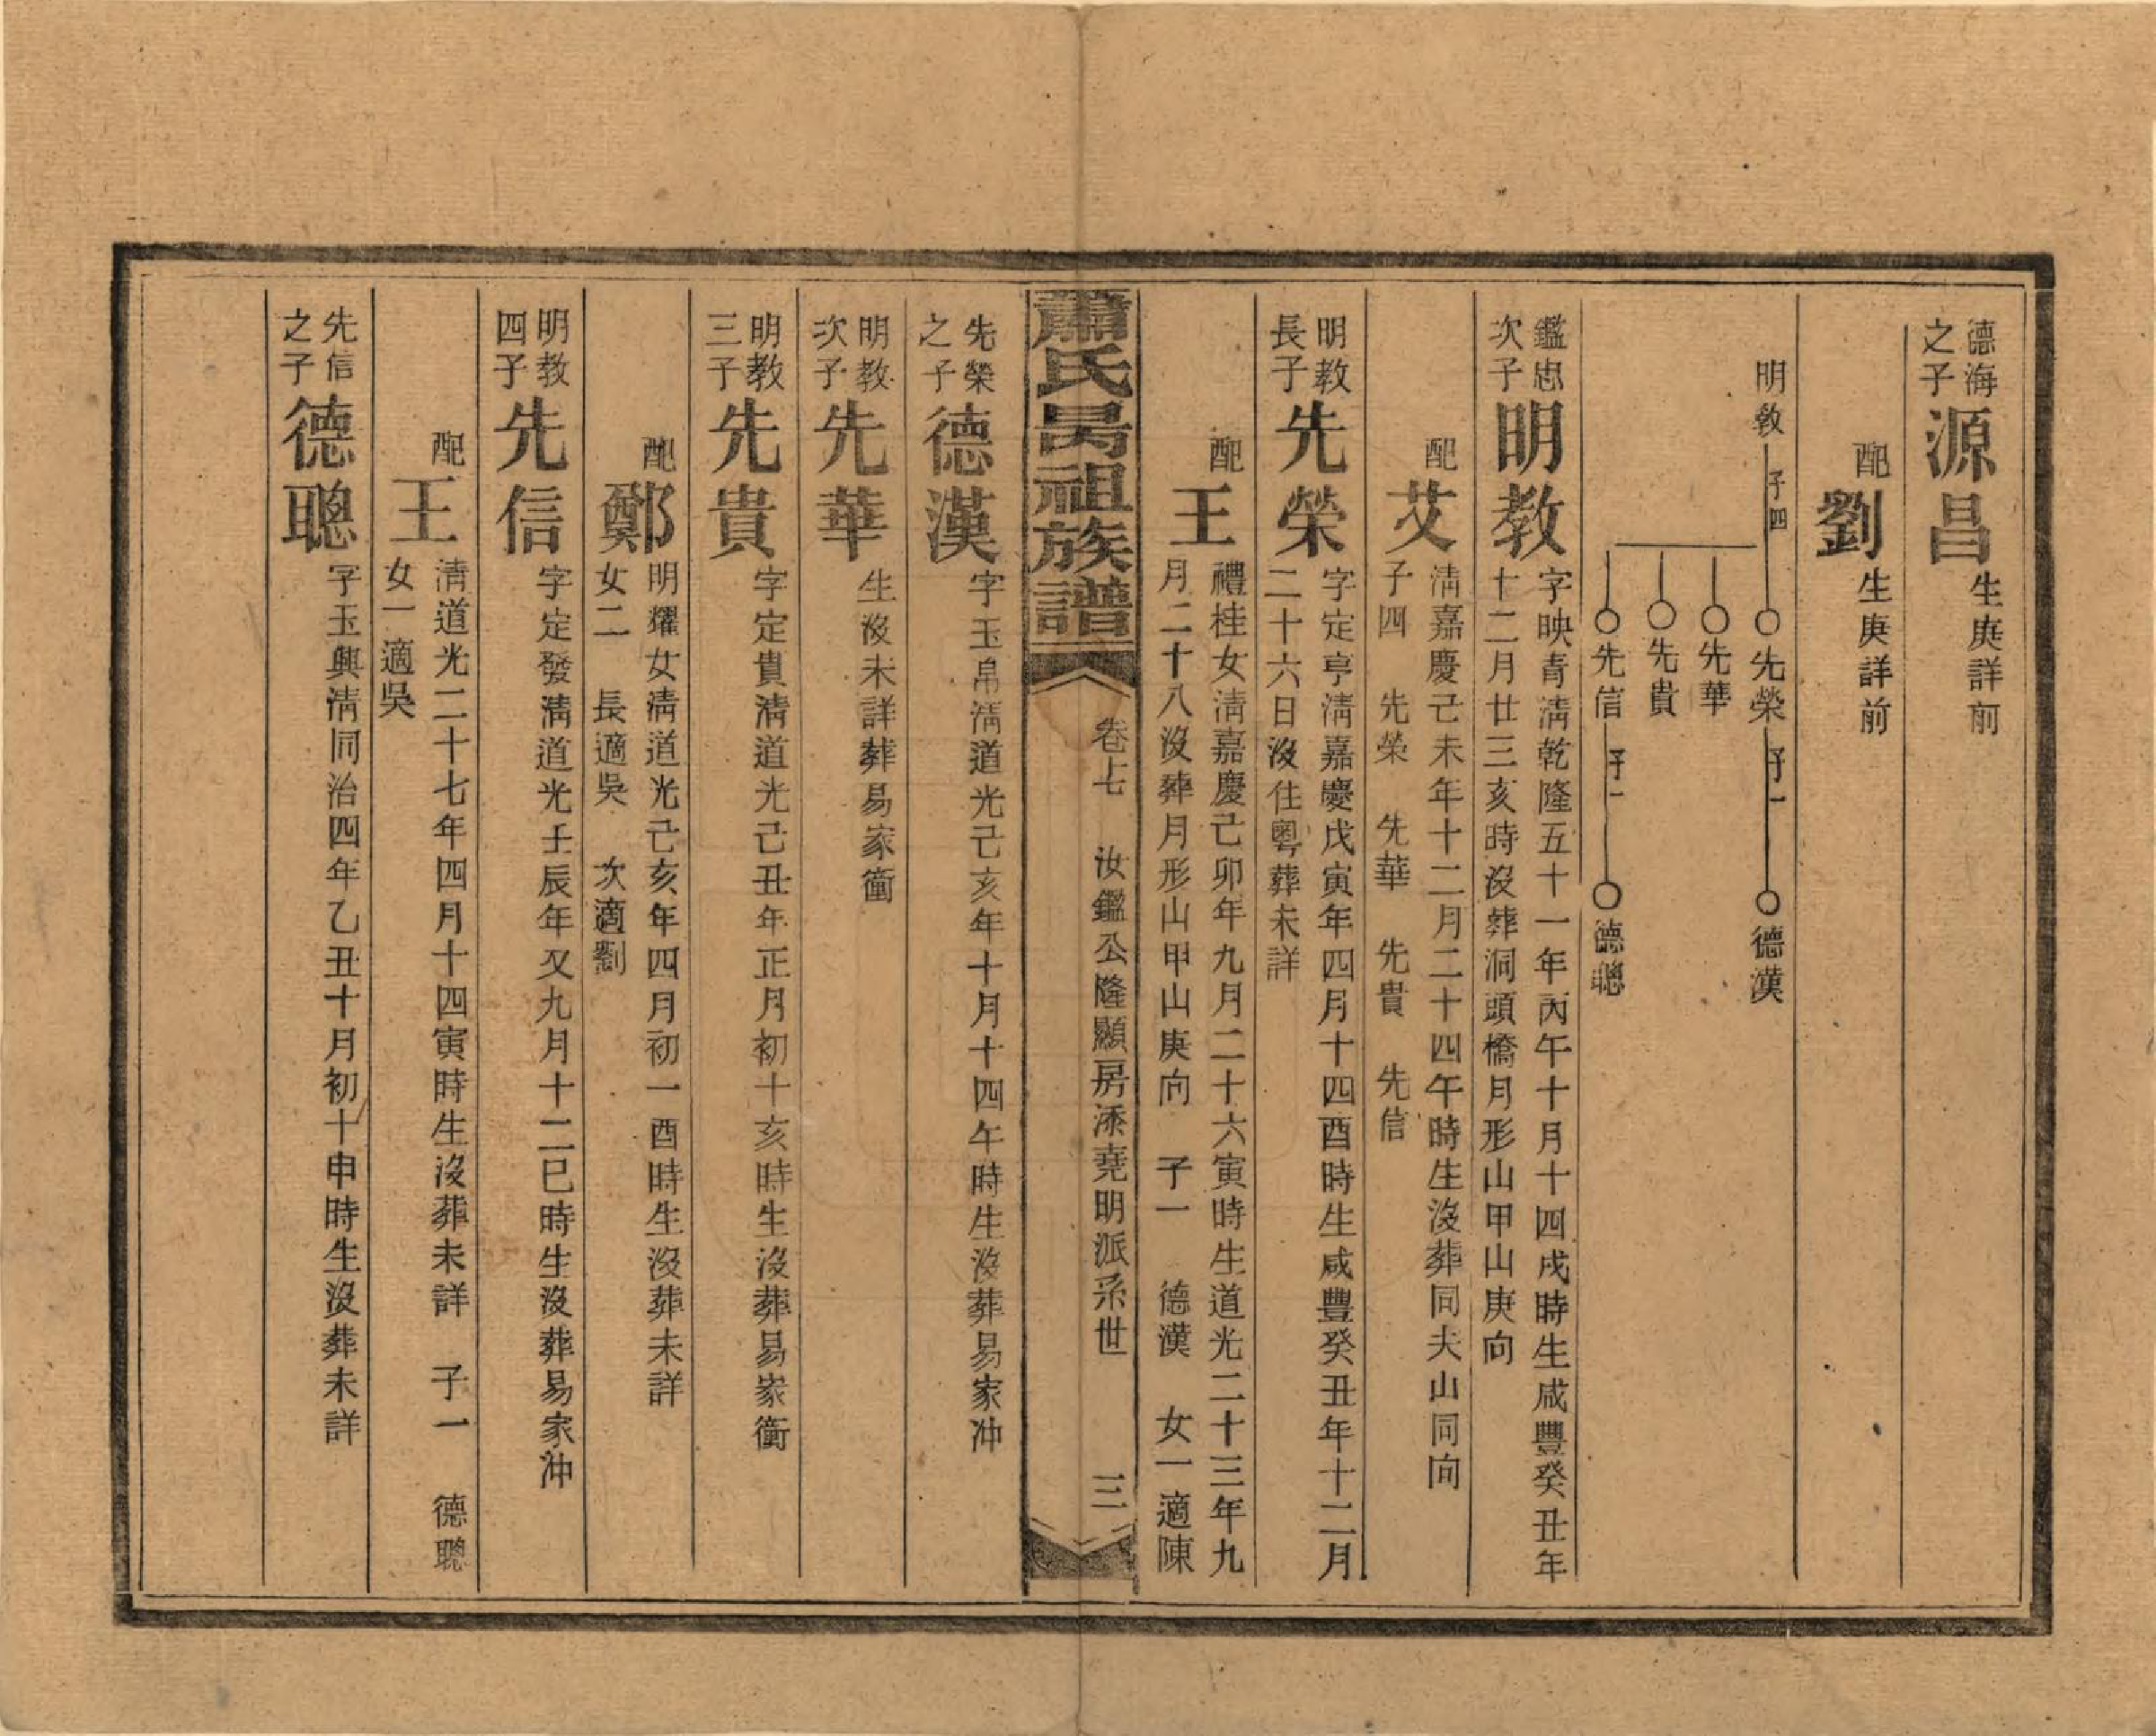 德海之子 源昌 生庚詳前
配 劉 生庚詳前
明教 子四 先榮 子一 德漢
先華
先貴
先信 子一 德聰
鑑忠次子 明教 字映青淸乾隆五十一年丙午十月十四戌時生咸豐癸丑年
十二月廿三亥時沒葬洞頭橋月形山甲山庚向
配 艾 淸嘉慶己未年十二月二十四午時生沒葬同夫山同向
子四 先榮 先華 先貴 先信
明教長子 先榮 字定亨淸嘉慶戊寅年四月十四酉時生咸豐癸丑年十二月
二十六日沒住粵葬未詳
配 王 禮桂女淸嘉慶己卯年九月二十六寅時生道光二十三年九
月二十八沒葬月形山甲山庚向 子一 德漢 女一適陳
蕭氏昺祖族譜 卷七 汝鑑公隆顯房添堯明派系世 三
先榮之子 德漢 字玉帛淸道光己亥年十月十四午時生沒葬易家冲
明教次子 先華 生沒未詳葬易家衝
明教三子 先貴 字定貴淸道光己丑年正月初十亥時生沒葬易家衝
配 鄭 明耀女淸道光己亥年四月初一酉時生沒葬未詳
女二 長適吳 次適劉
明教四子 先信 字定發淸道光壬辰年又九月十二巳時生沒葬易家冲
配 王 淸道光二十七年四月十四寅時生沒葬未詳 子一 德聰
女一適吳
先信之子 德聰 字玉興淸同治四年乙丑十月初十申時生沒葬未詳